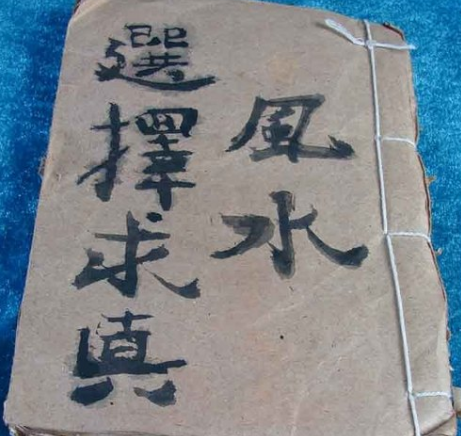 風水
選擇求真